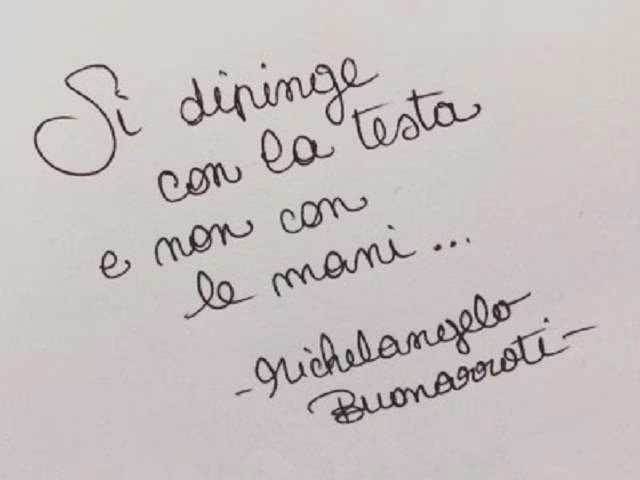 Si dipinge
con la testa
e non con
le mani...
-Michelangelo
Buonarroti-